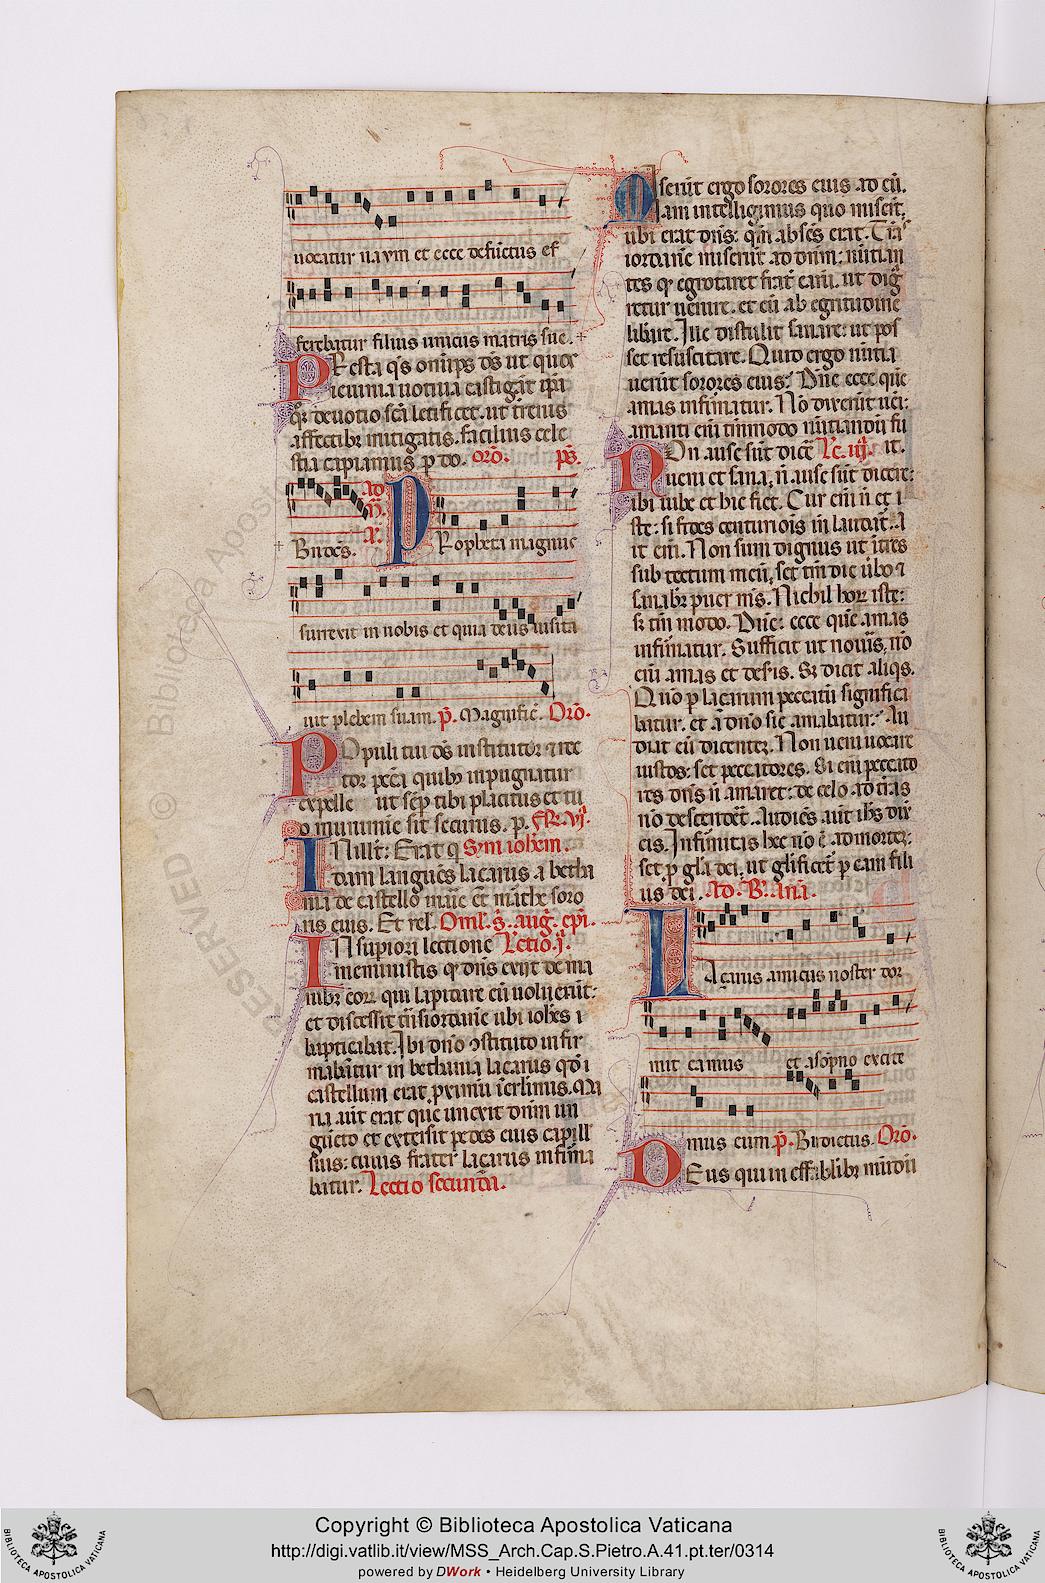 uocatur naym et ecce defūctus ef
ferebatur filius unicus matris sue.
PResta q̄s om̄ps d̄s ut que
ieiunia uotiua castigāt ip̄a
q̄z deuotio sc̄a letificet. ut t̄renis
affectibz mitigatis. facilius cele
stia capiamus p do. or̄o. p̄s.
Bn̄dc̄s. ad PRopheta magnus
surrexit in nobis et quia deus uisita
uit plebem suam. p̄. Magnific̄. Or̄o.
POpuli tui d̄s institutor et rec
tor pcc̄a quibz inpugnatur
expelle ut sēp tibi placitus et tu
o munimīe sit securus. p. FR. vj.
IN illīt: Erat q Sym ioh̄em.
dam languēs lacarus a betha
nia de castello marīe et marthe soro
ris eius. Et rel. Oml. s̄. aug̃. ep̄i.
IN sup̄iori lectione Lectio j.
meministis q d̄n̄s exijt de ma
nibz eorz qui lapidare eū uoluerūt:
et discessit trāsiordanē ubi ioh̄es
bapticabat. Ibi dn̄o ostituto infir
mabātur in bethania lacarus qd̄
castellum erat proximū ierl̄imis. Ma
ria aūt erat que unxit dn̄m un
guēto et extersit pedes eius capill
suis: cuius frater lacarus infirma
batur. Lectio secunda.
Miserūt ergo sorores eius ad eū.
Iam intelligimus quo miserūt,
ubi erat dn̄s: qm̄ absēs erat. Trās
iordanē miserūt ad dn̄m: nūtian
tes q egrotaret frat̄ earū. ut dig
retur uenire. et eū ab egritudine
libāret. Ille distulit sanare: ut pos
set resuscitare. Quid ergo nūtia
uerūt sorores eius? Dn̄e ecce quē
amas infirmatur. Nō dixerūt ueī:
amanti eīm tīnmodo nūtiandū fu
NOn ause sūt dicē Lc. iij. it.
ueni et sana, n̄ ause sūt dicere:
ibi iube et hic fiet. Cur eīm n̄ et i
ste: si fides centuriōis īn laudat̄. A
it eīm. Non sum dignus ut ītres
sub tectum meū, set tm̄ dic ūbo et
sanabr̄ puer m̄s. Nichil horz iste:
s̄ tm̄ modo. Dn̄e: ecce quē amas
infirmatur. Sufficit ut noūis, nō
eīm amas et desis. S̄z dicit aliqs.
Quō p lacarum peccatū significa
batur. et a dn̄o sic amabatur? Au
diat eū dicentez. Non ueni uocare
iustos: set peccatores. Si eīm peccato
res dn̄s n̄ amaret: de celo ad t̄ras
nō descenderet. Audiēs aūt ih̄s dix̄
eis. Infirmitas hec nō ē ad mortez:
set p gl̄a dei, ut glificet̄ p eam fili
us dei. Ad. B. an̄a.
LAcarus amicus noster dor
mit eamus et asōpno excite
mus eum. p̄. Bn̄dictus. Or̄o.
DEus qui ineffablibz mūdū
Copyright © Biblioteca Apostolica Vaticana
http://digi.vatlib.it/view/MSS_Arch.Cap.S.Pietro.A.41.pt.ter/0314
powered by DWork • Heidelberg University Library